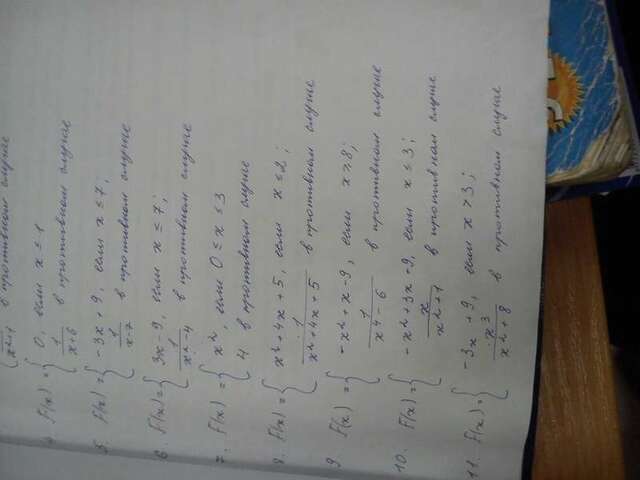 x²+1 в противном случае
4. F(x) = { 0, если x ≤ -1
1/(x+6) в противном случае
5. F(x) = { -3x + 9, если x ≤ 7;
1/(x-7) в противном случае
6. F(x) = { 3x - 9, если x ≤ 7;
1/(x²-4) в противном случае
7. F(x) = { x², если 0 ≤ x ≤ 3
4 в противном случае
8. F(x) = { x² + 4x + 5, если x ≤ 2;
1/(x² + 4x + 5) в противном случае
9. F(x) = { -x² + x - 9, если x ≥ 8;
1/(x⁴ - 6) в противном случае
10. F(x) = { -x² + 3x - 9, если x ≤ 3;
x/(x² + 1) в противном случае
11. F(x) = { -3x + 9, если x > 3;
x³/(x² + 8) в противном случае